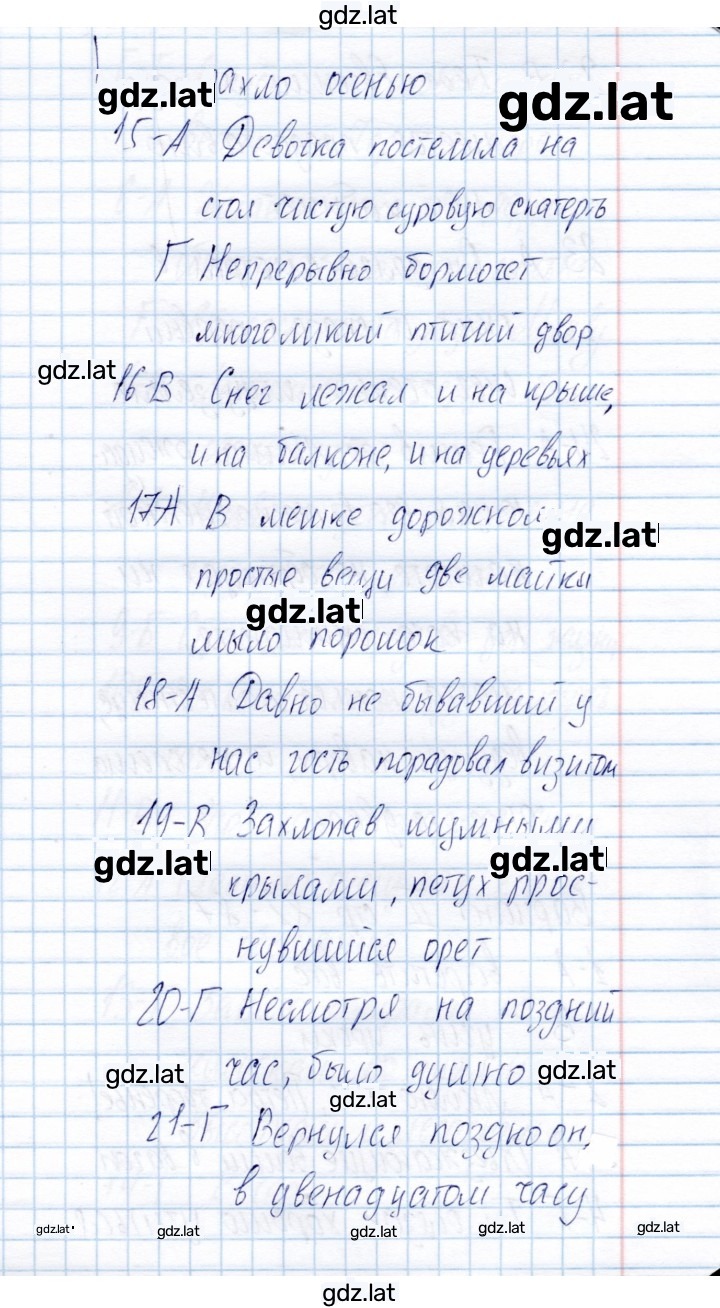 gdz.lat
ахло осенью
gdz.lat gdz.lat
15-А Девочка постелила на
стол чистую суровую скатерть
Г Непрерывно бормочет
многоликий птичий двор
gdz.lat
16-В Снег лежал и на крыше,
и на балконе, и на деревьях
17А В мешке дорожном
gdz.lat
простые вещи две майки
gdz.lat
мыло порошок
18-А Давно не бывавший у
нас гость порадовал визитом
19-В Захлопав шумными
gdz.lat gdz.lat
крылами, петух прос-
нувшийся орет
20-Г Несмотря на поздний
час, было душно
gdz.lat gdz.lat
gdz.lat
21-Г Вернулся поздно он,
в двенадцатом часу
gdz.lat gdz.lat gdz.lat gdz.lat gdz.lat
gdz.lat